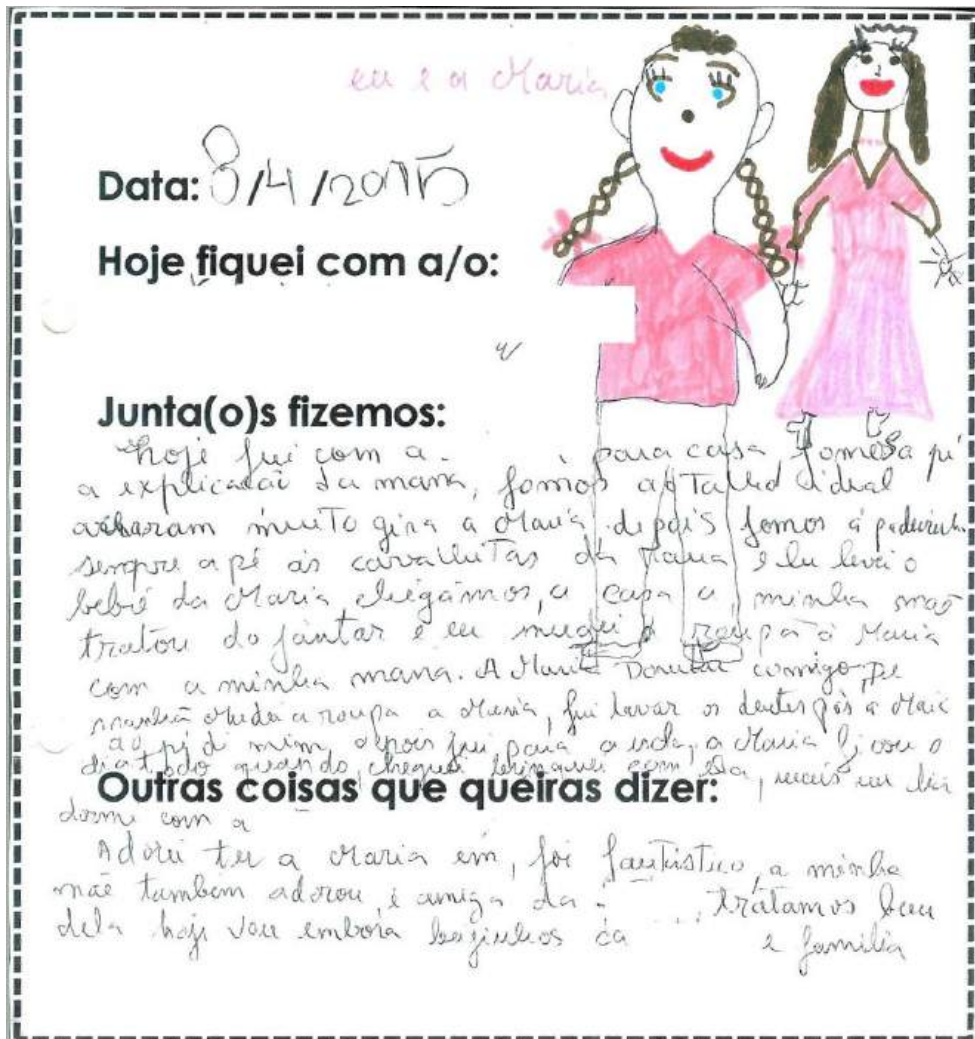 eu e a Maria
Data: 8/4/2015
Hoje fiquei com a/o:
Junta(o)s fizemos:
hoje fui com a para casa fomos a pé
a da mana, fomos ao Talho ideal
acharam muito gira a Maria depois fomos á
sempre a pé ás da e eu levei o
bebé da Maria, chegámos, a casa a minha mãe
tratou do jantar e eu mudei a roupa á Maria
com a minha mana. A Maria comigo, de
manhã mudei a roupa a Maria, fui lavar os dentes pôs a
ao pé di mim, depois fui para a , a Maria ficou o
dia todo quando, cheguei brinquei com, ela, mais um
Outras coisas que queiras dizer:
dormi com a
Adorei ter a Maria em, foi fantástico, a minha
mãe também adorou, é amiga da tratamos bem
dela hoje vou embora beijinhos da e família